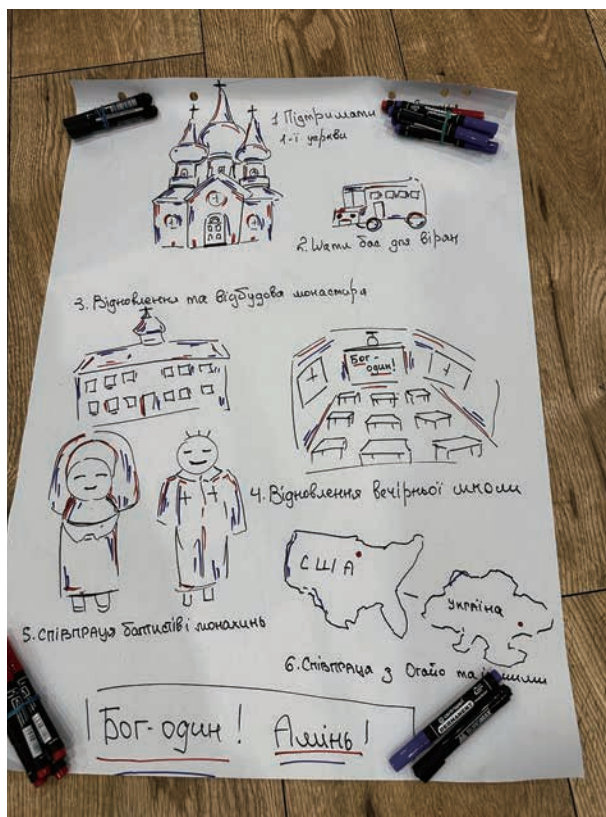 1 Підтримати
1-ї церкви
2. Мати бас для вірян
3. Відновлення та відбудова монастиря
Бог-
один!
4. Відновлення вечірньої школи
США
Україна
5. Співпраця баптистів і монахинь
6. Співпраця з Огайо та
Бог-один! Амінь!